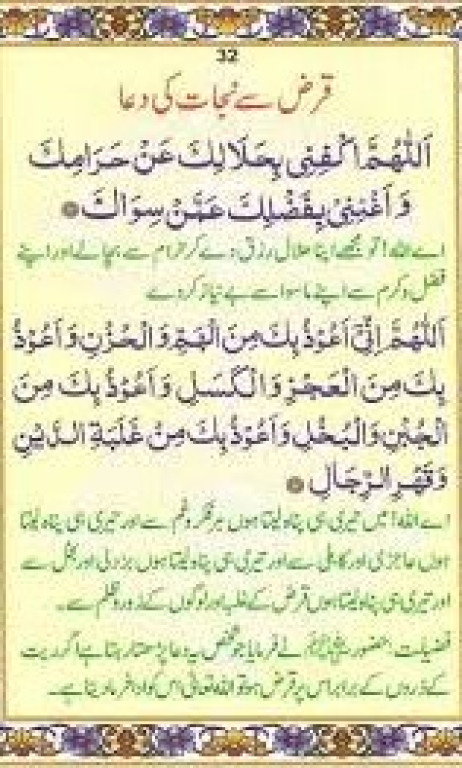 32
قرض سے نجات کی دعا
اَللّٰهُمَّ اكْفِنِى بِحَلَالِكَ عَنْ حَرَامِكَ
وَاَغْنِنِىْ بِفَضْلِكَ عَمَّنْ سِوَاكَ
اے اللہ! تو مجھے اپنا حلال رزق دے کر حرام سے بچالے اور اپنے
فضل و کرم سے اپنے ماسوا سے بے نیاز کر دے
اَللّٰهُمَّ اِنِّىْ اَعُوْذُ بِكَ مِنَ الْهَمِّ وَالْحُزْنِ وَاَعُوْذُ
بِكَ مِنَ الْعَجْزِ وَالْكَسَلِ وَاَعُوْذُ بِكَ مِنَ
الْجُبْنِ وَالْبُخْلِ وَاَعُوْذُ بِكَ مِنْ غَلَبَةِ الدَّيْنِ
وَقَهْرِ الرِّجَالِ
اے اللہ! میں تیری ہی پناہ لیتا ہوں ہر فکر و غم سے اور تیری ہی پناہ لیتا
ہوں عاجزی اور کاہلی سے اور تیری ہی پناہ لیتا ہوں بزدلی اور بخل سے
اور تیری ہی پناہ لیتا ہوں قرض کے غلبہ اور لوگوں کے زور و ظلم سے۔
فضیلت: حضور ﷺ نے فرمایا جو شخص یہ دعا پڑھتا رہتا ہے اگر ریت
کے ذروں کے برابر اس پر قرض ہو تو اللہ تعالیٰ اس کو ادا فرما دیتا ہے۔